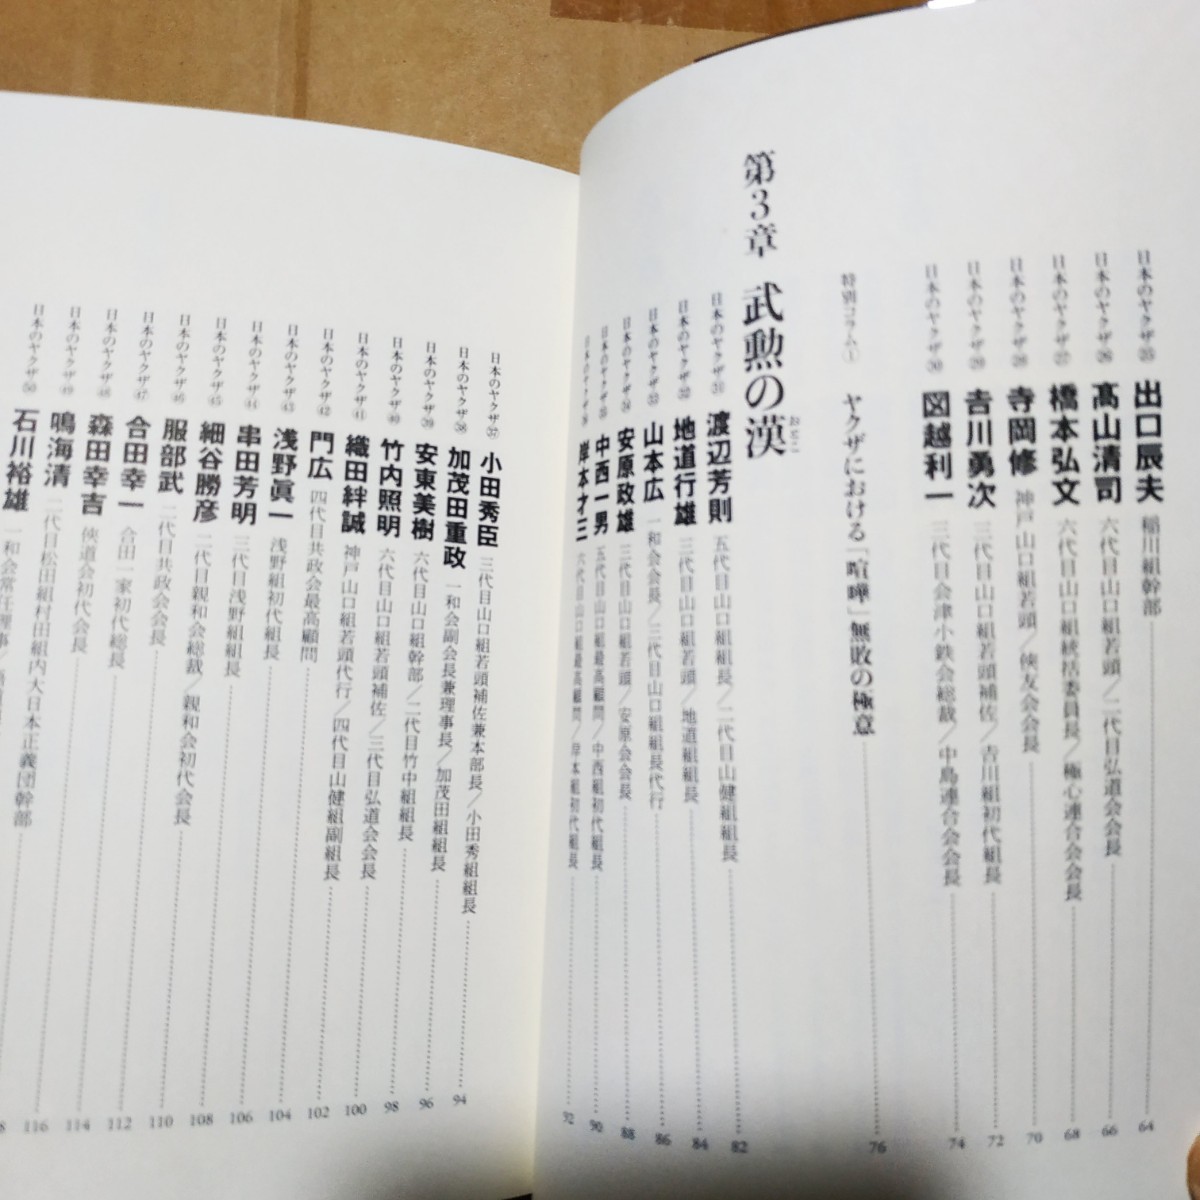 日本のヤクザ㉕ 出口辰夫 稲川組幹部 64
日本のヤクザ㉖ 髙山清司 六代目山口組若頭／二代目弘道会会長 66
日本のヤクザ㉗ 橋本弘文 六代目山口組統括委員長／極心連合会会長 68
日本のヤクザ㉘ 寺岡修 神戸山口組若頭／俠友会会長 70
日本のヤクザ㉙ 𠮷川勇次 三代目山口組若頭補佐／𠮷川組初代組長 72
日本のヤクザ㉚ 図越利一 三代目会津小鉄会総裁／中島連合会会長 74
特別コラム① ヤクザにおける「喧嘩」無敗の極意 76
第3章 武勲の漢
おとこ
日本のヤクザ㉛ 渡辺芳則 五代目山口組組長／二代目山健組組長 82
日本のヤクザ㉜ 地道行雄 三代目山口組若頭／地道組組長 84
日本のヤクザ㉝ 山本広 一和会会長／三代目山口組組長代行 86
日本のヤクザ㉞ 安原政雄 三代目山口組若頭／安原会会長 88
日本のヤクザ㉟ 中西一男 五代目山口組最高顧問／中西組初代組長 90
日本のヤクザ㊱ 岸本才三 六代目山口組最高顧問／岸本組初代組長 92
日本のヤクザ㊲ 小田秀臣 三代目山口組若頭補佐兼本部長／小田秀組組長 94
日本のヤクザ㊳ 加茂田重政 一和会副会長兼理事長／加茂田組組長 96
日本のヤクザ㊴ 安東美樹 六代目山口組幹部／二代目竹中組組長 98
日本のヤクザ㊵ 竹内照明 六代目山口組若頭補佐／三代目弘道会会長 100
日本のヤクザ㊶ 織田絆誠 神戸山口組若頭代行／四代目山健組副組長 102
日本のヤクザ㊷ 門広 四代目共政会最高顧問 104
日本のヤクザ㊸ 浅野眞一 浅野組初代組長 106
日本のヤクザ㊹ 串田芳明 三代目浅野組組長 108
日本のヤクザ㊺ 細谷勝彦 二代目親和会総裁／親和会初代会長 110
日本のヤクザ㊻ 服部武 二代目共政会会長 112
日本のヤクザ㊼ 合田幸一 合田一家初代総長 114
日本のヤクザ㊽ 森田幸吉 俠道会初代会長 116
日本のヤクザ㊾ 鳴海清 二代目松田組村田組内大日本正義団幹部
日本のヤクザ㊿ 石川裕雄 一和会常任理事／